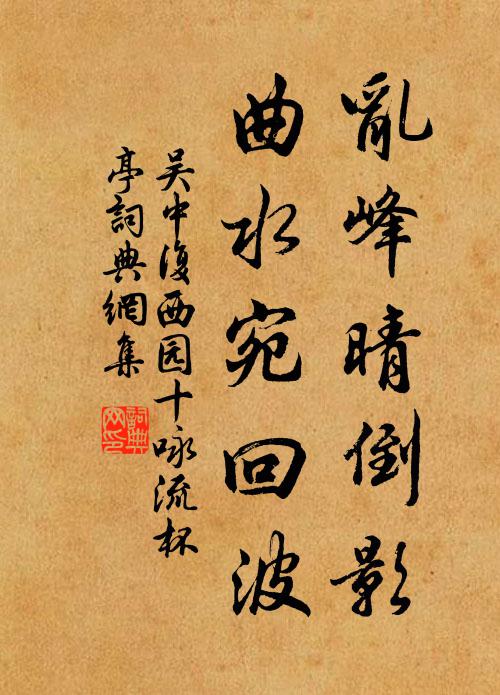 亂峰晴倒影
曲水宛回波
吴中復西园十咏流杯
亭詞典網集
詞典
网印